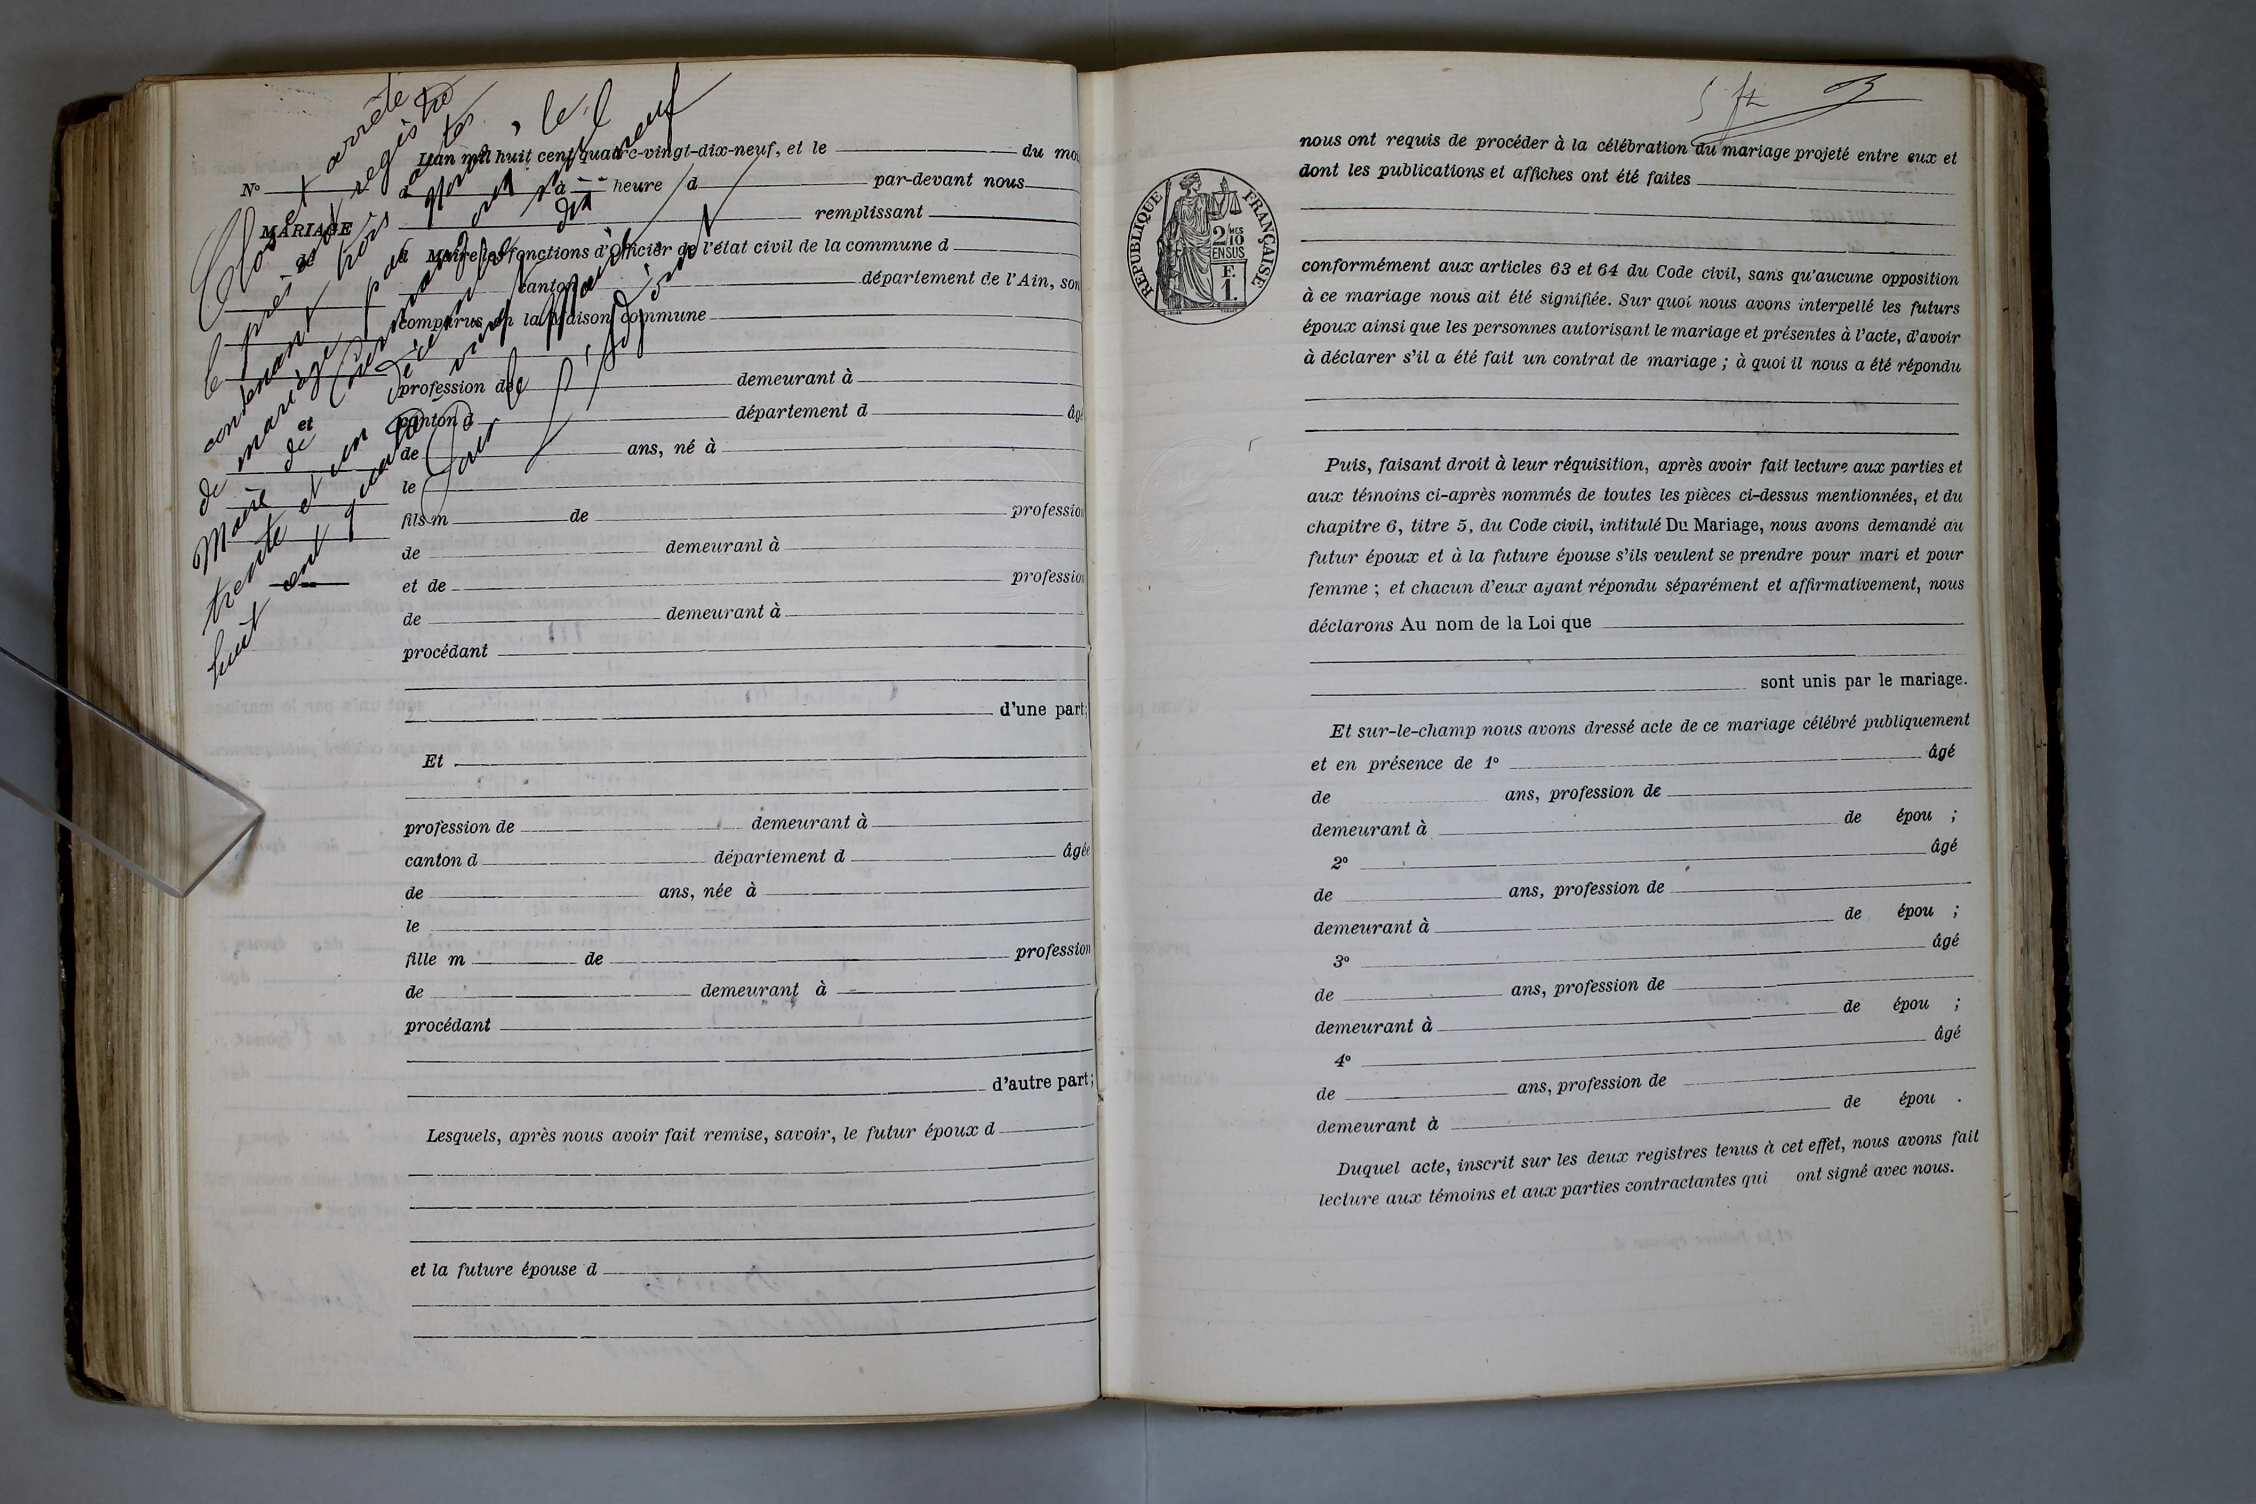 Clos et arrêté
le présent registre
contenant trois actes
de mariage par Nous,
Maire de
trente et un Décembre mil
huit cent quatre vingt dix neuf
Pour le Maire
l'adjoint
L'an mil huit cent quatre-vingt-dix-neuf, et le du mo
N° à heure d par-devant nous
MARIAGE remplissant
de
et
d Maire les fonctions d'Officier de l'état civil de la commune d
canton département de l'Ain, son
comparus en la Maison commune
profession de demeurant à
canton d département d âgé
de ans, né à
le
fils m de profession
de demeurant à
et de profession
de demeurant à
procédant
d'une part;
Et
profession de demeurant à
canton d département d âgée
de ans, née à
le
fille m de profession
de demeurant à
procédant
d'autre part;
Lesquels, après nous avoir fait remise, savoir, le futur époux d
et la future épouse d
RÉPUBLIQUE FRANÇAISE
2/10
EN SUS
F.
1.
nous ont requis de procéder à la célébration du mariage projeté entre eux et
dont les publications et affiches ont été faites
conformément aux articles 63 et 64 du Code civil, sans qu'aucune opposition
à ce mariage nous ait été signifiée. Sur quoi nous avons interpellé les futurs
époux ainsi que les personnes autorisant le mariage et présentes à l'acte, d'avoir
à déclarer s'il a été fait un contrat de mariage ; à quoi il nous a été répondu
Puis, faisant droit à leur réquisition, après avoir fait lecture aux parties et
aux témoins ci-après nommés de toutes les pièces ci-dessus mentionnées, et du
chapitre 6, titre 5, du Code civil, intitulé Du Mariage, nous avons demandé au
futur époux et à la future épouse s'ils veulent se prendre pour mari et pour
femme ; et chacun d'eux ayant répondu séparément et affirmativement, nous
déclarons Au nom de la Loi que
sont unis par le mariage.
Et sur-le-champ nous avons dressé acte de ce mariage célébré publiquement
et en présence de 1° âgé
de ans, profession de
demeurant à de épou ;
2° âgé
de ans, profession de
demeurant à de épou ;
3° âgé
de ans, profession de
demeurant à de épou ;
4° âgé
de ans, profession de
demeurant à de épou .
Duquel acte, inscrit sur les deux registres tenus à cet effet, nous avons fait
lecture aux témoins et aux parties contractantes qui ont signé avec nous.